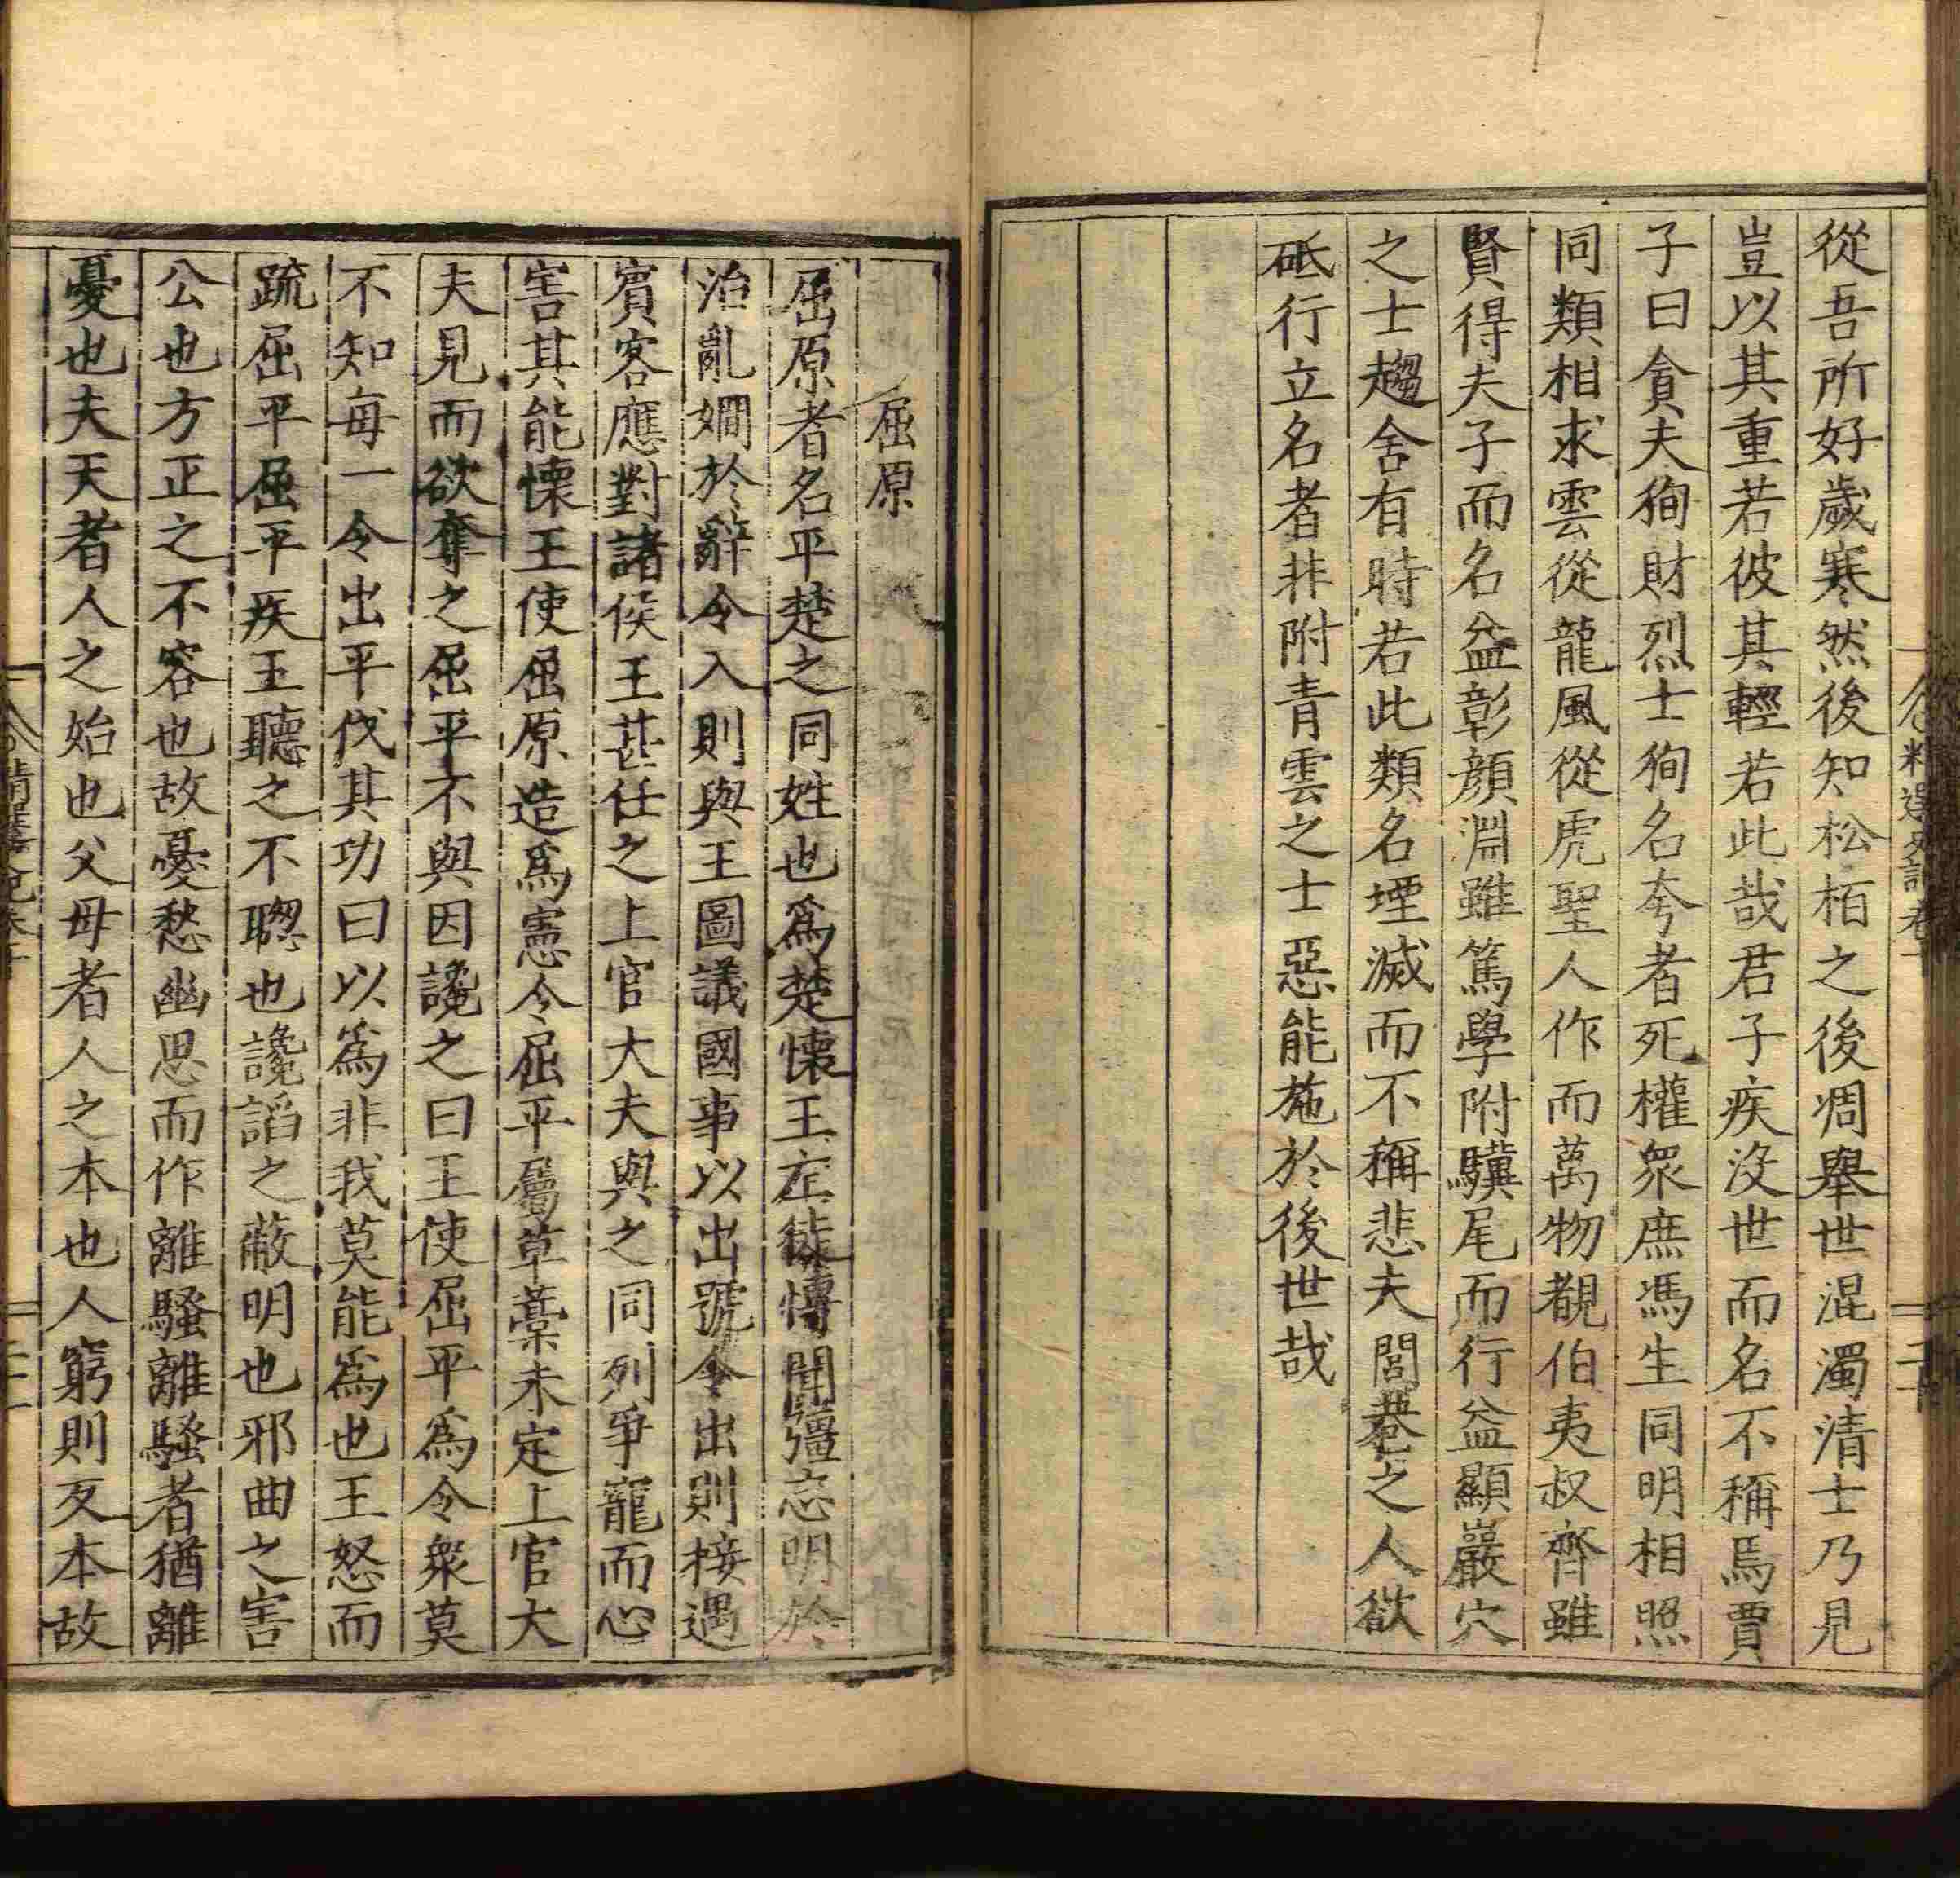 從吾所好歲寒然後知松栢之後凋舉世混濁清士乃見
豈以其重若彼其輕若此哉君子疾沒世而名不稱焉賈
子曰貪夫狥財烈士狥名夸者死權衆庶馮生同明相照
同類相求雲從龍風從虎聖人作而萬物覩伯夷叔齊雖
賢得夫子而名益彰顔淵雖篤學附驥尾而行益顯巖穴
之士趨舍有時若此類名堙滅而不稱悲夫閭巷之人欲
砥行立名者非附青雲之士惡能施於後世哉
屈原
屈原者名平楚之同姓也爲楚懷王左徒博聞彊志明於
治亂嫺於辭令入則與王圖議國事以出號令出則接遇
賓客應對諸侯王甚任之上官大夫與之同列爭寵而心
害其能懷王使屈原造爲憲令屈平屬草藁未定上官大
夫見而欲奪之屈平不與因讒之曰王使屈平爲令衆莫
不知每一令出平伐其功曰以爲非我莫能爲也王怒而
疏屈平屈平疾王聽之不聰也讒諂之蔽明也邪曲之害
公也方正之不容也故憂愁幽思而作離騷離騷者猶離
憂也夫天者人之始也父母者人之本也人窮則反本故